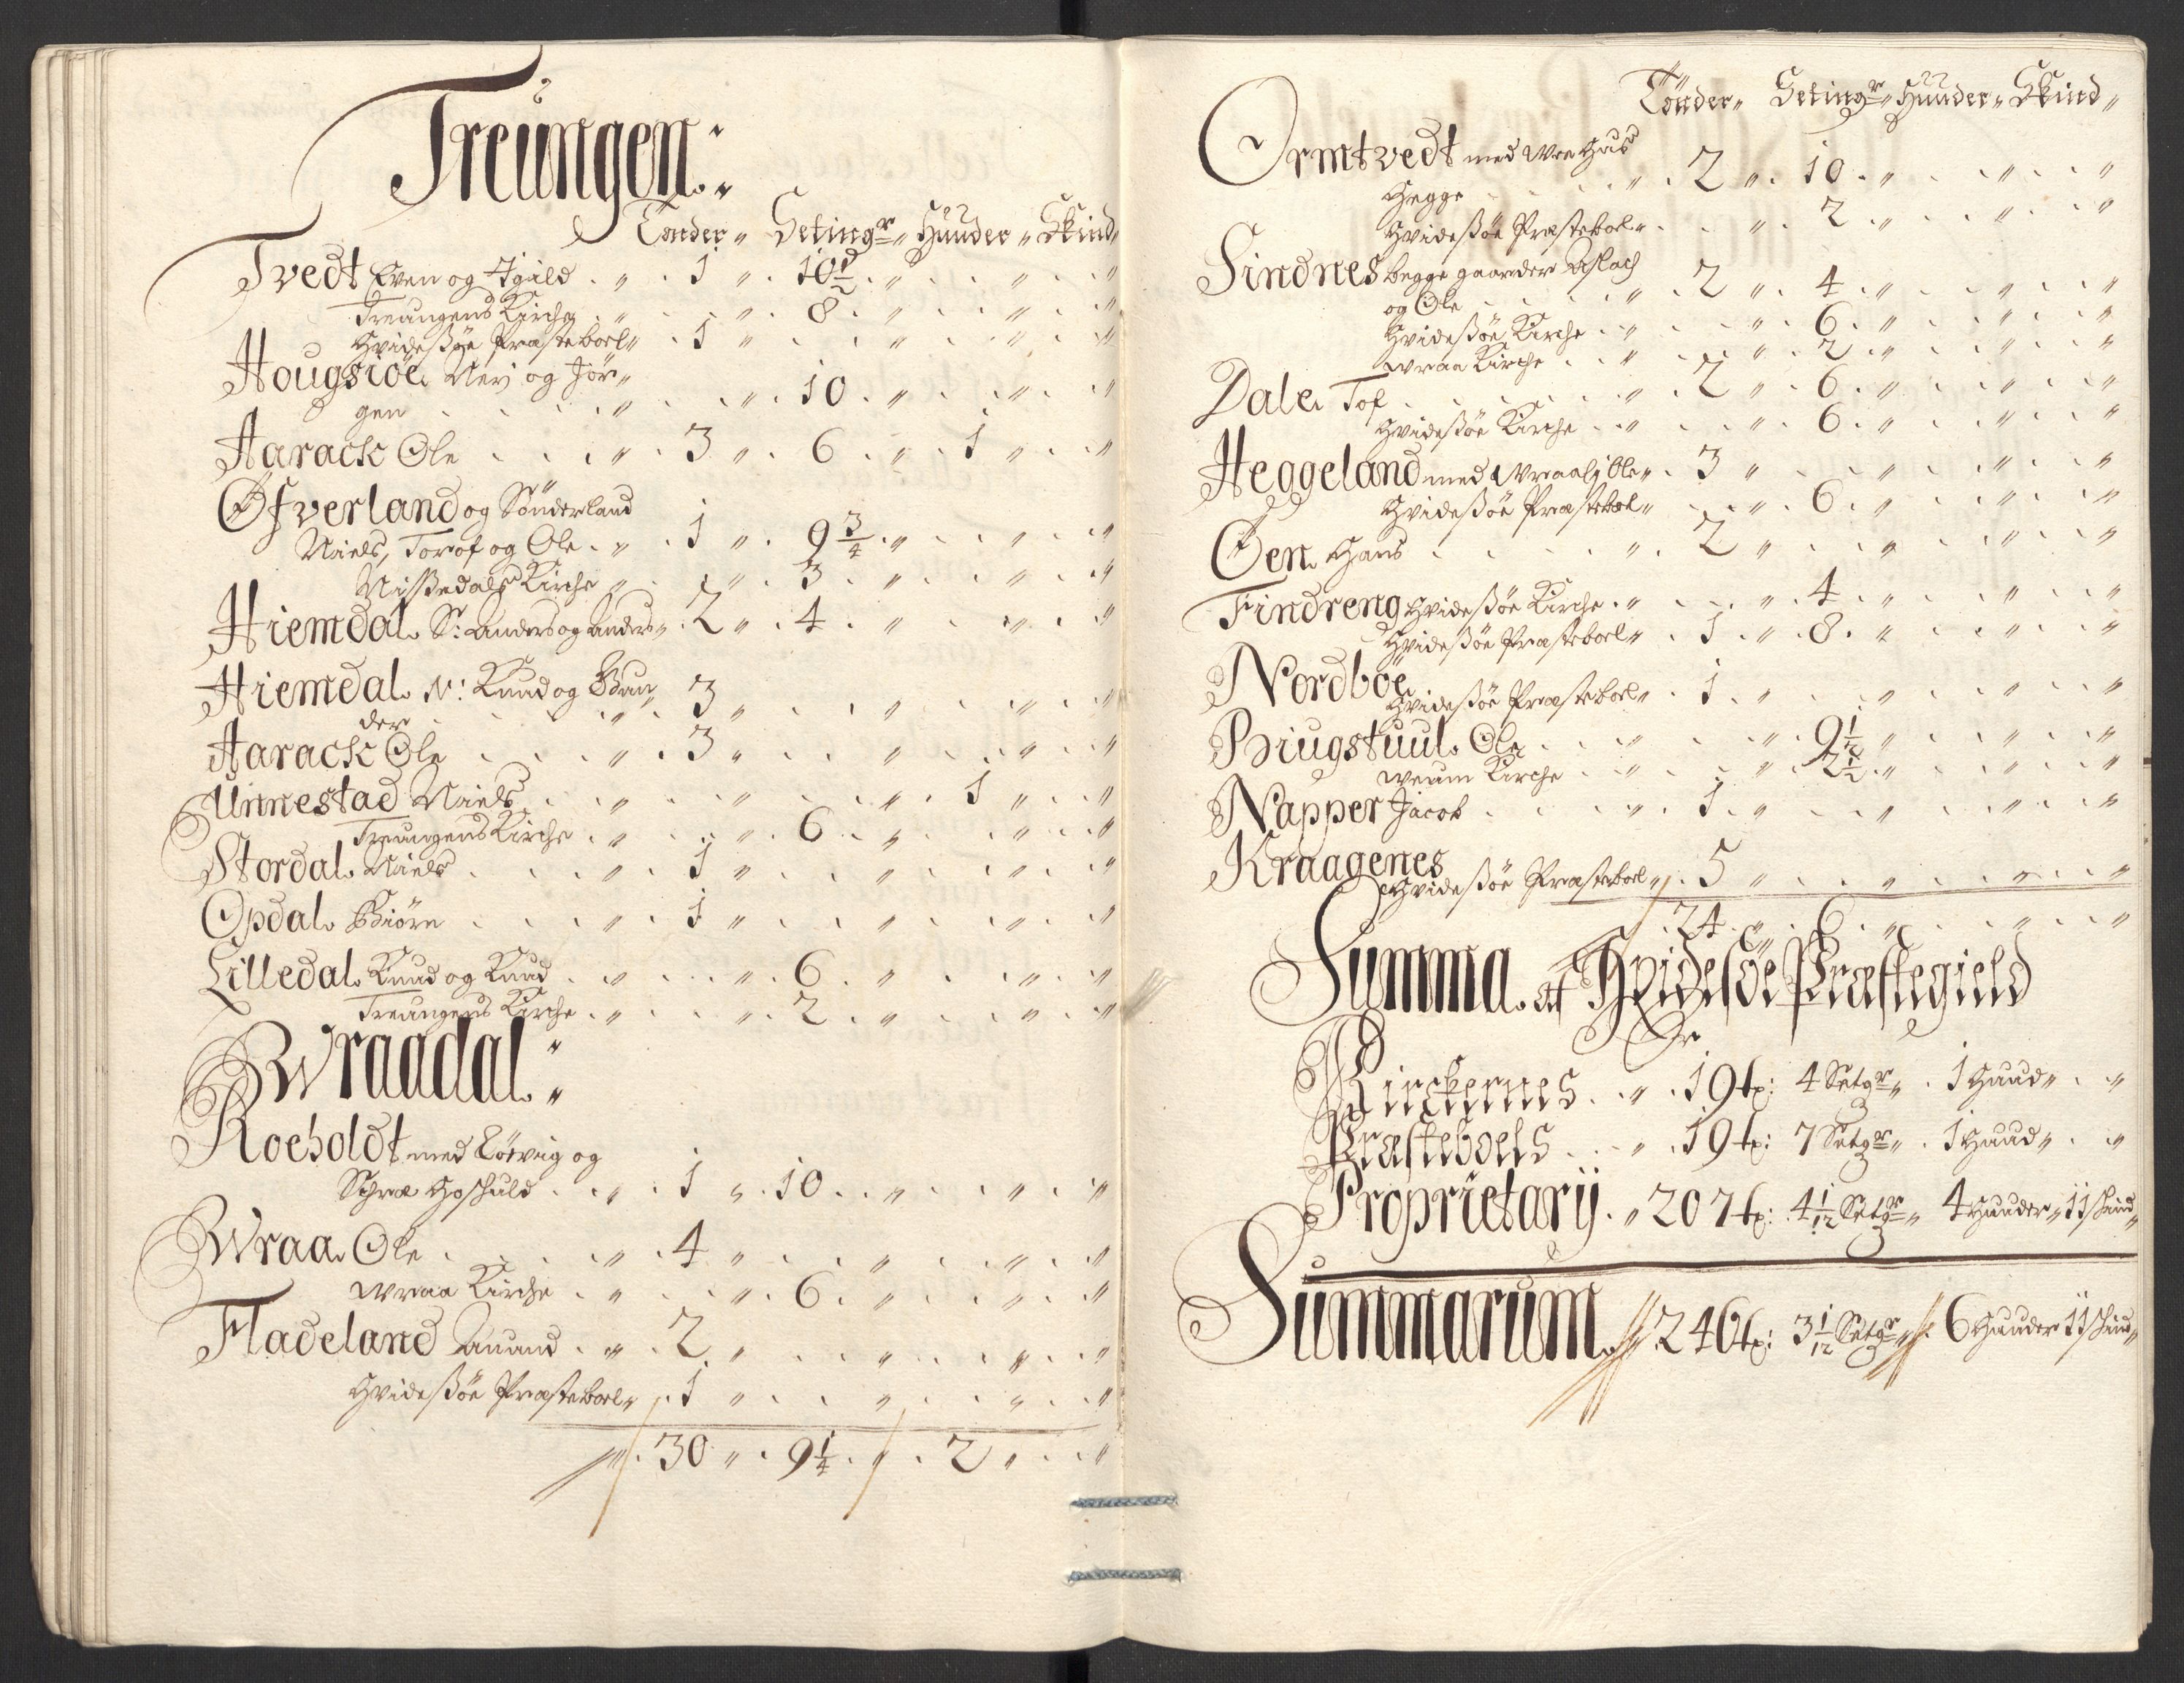 Treungen:
Tønder „ Setingr „ Huuder „ Skind „
Tvedt Even og Igild . „ . 1 „ . 10½ . „ . . „ . . „
Treungens Kirche . „ . . „ . 8 . „ . . „ . . „
Hvidesøe Præsteboel „ . 1 „ . . „ . . „ . . „
Hougsiøe Nerj og Jør„
gen . . . . „ . . „ . 10 . „ . . „ . . „
Aarack Ole . . . „ . 3 „ . 6 . „ . 1 „ . . „
Øfverland og Sønderland
Niels, Torof og Ole . „ . 1 „ . 9¾ . „ . . „ . . „
Nissedals Kirche „ . . „ . 3 . „ . . „ . . „
Hiemdal S: Anders og Anders „ . 2 „ . 4 . „ . . „ . . „
Hiemdal N: Knud og Gun„ 3 „ . . „ . . „ . . „
der . . . . „
Aarack Ole . . . . „ . 3 „ . . „ . . „ . . „
Unnestad Niels . . . „ . . „ . . „ . 1 „ . . „
Treungens Kirche . „ . . „ . 6 . „ . . „ . . „
Stordal Niels . . . . „ . 1 „ . . „ . . „ . . „
Opdal Biørn . . . . „ . 1 „ . . „ . . „ . . „
Lilledal Knud og Knud . . „ . . „ . 6 . „ . . „ . . „
Treungens Kirche . „ . . „ . 2 . „ . . „ . . „
Wraadal:
Roeholdt med Løevig og
Schræ Hoschuld . . „ . 1 „ . 10 . . „ . . „ . . „
Wraa Ole . . . . „ . 4 „ . . „ . . „ . . „
Wraa Kirche . „ . . „ . 6 . „ . . „ . . „
Fladeland Anund . „ . 2 „ . . „ . . „ . . „
Hvidesøe Præsteboel „ . 1 „ . . „ . . „ . . „
„ . 30 „ . 9¼ . „ . 2 „ . . „
Tønder „ Setingr „ Huuder „ Skind „
Ormtvedt med Wræ Hus
Hegge . . . . „ . 2 „ . 10 . „ . . „ . . „
Hvidesøe Præsteboel „ . . „ . 2 . „ . . „ . . „
Sindnes begge gaarder Aslach
og Ole . . . . „ . 2 „ . 4 . „ . . „ . . „
Hvidesøe Kirche . „ . . „ . 6 . „ . . „ . . „
Wraa Kirche . . „ . . „ . 2 . „ . . „ . . „
Dale Tof . . . . „ . 2 „ . 6 . „ . . „ . . „
Hvidesøe Kirche . „ . . „ . 6 . „ . . „ . . „
Heggeland med Wraalj Ole „ . 3 „ . . „ . . „ . . „
Hvidesøe Præsteboel „ . . „ . 6 . „ . . „ . . „
Øen Hans . . . . „ . 2 „ . . „ . . „ . . „
Findreng Hvidesøe Kirche . „ . . „ . 4 . „ . . „ . . „
Hvidesøe Præsteboel „ . 1 . „ . 8 . „ . . „ . . „
Nordbøe
Hvidesøe Præsteboel „ . 1 . „ . . „ . . „ . . „
Biugstuul Ole . . . „ . . „ . 9½ „ . . „ . . „
Weum Kirche . . „ . . „ . 2½ „ . . „ . . „
Napper Jacob . . . „ . 1 . „ . . „ . . „ . . „
Kraagenes
Hvidesøe Præsteboel „ . 5 „ . . „ . . „ . . „
. 24 . „ . 6 . „ . . „ . . „
Summa af Hvidesøe Præstegield
Er
Kirckernes . . „ . 19 t: 4 Setgr „ . 1 Huud „ . „
Præsteboels . . „ . 19 t: 7 Setgr „ . 1 Huud „ . „
Proprietarij . „ 207 t: 4 1/12 Setgr „ 4 Huuder „ 11 skind „
Summarum „ 246 t: 3 1/12 Setgr „ 6 Huuder 11 skind „